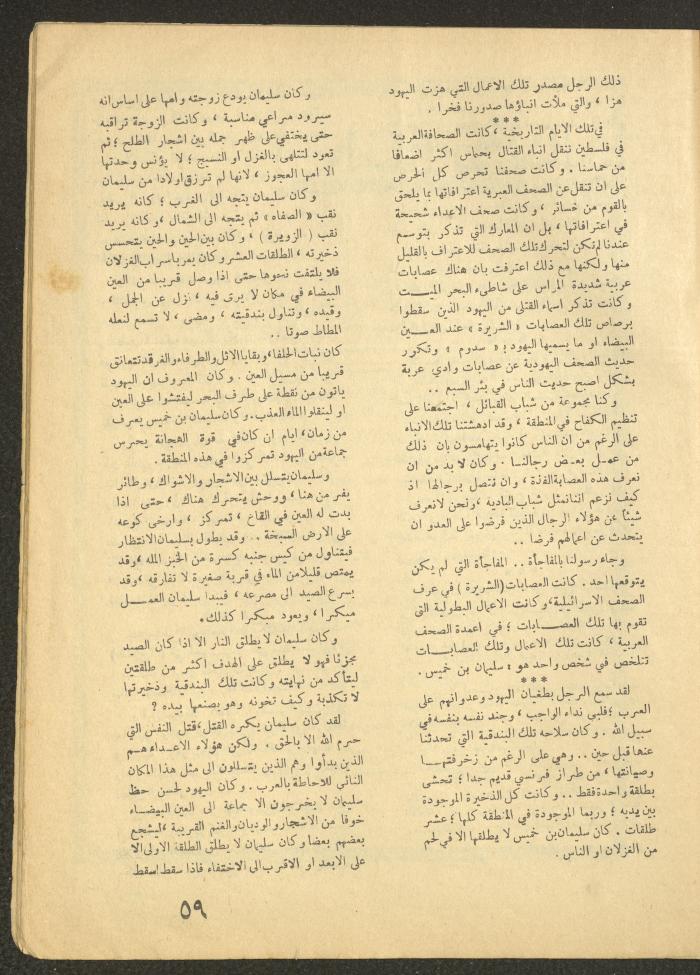 ذلك الرجل مصدر تلك الاعمال التي هزت اليهود
هزا ، والتي ملأت انباؤها صدورنا فخرا .
***
في تلك الايام التاريخية ، كانت الصحافة العربية
في فلسطين تنقل انباء القتال بحماس اكثر اضعافا
من حماسنا . وكانت صحفنا تحرص كل الحرص
على ان تنقل عن الصحف العبرية اعترافاتها بما يلحق
بالقوم من خسائر ، وكانت صحف الاعداء شحيحة
في اعترافاتها ، بل ان المعارك التي تذكر بتوسع
عندنا لم تكن لتحرك تلك الصحف للاعتراف بالقليل
منها ولكنها مع ذلك اعترفت بان هناك عصابات
عربية شديدة المراس على شاطىء البحر الميت
وكانت تذكر اسماء القتلى من اليهود الذين سقطوا
برصاص تلك العصابات « الشريرة » عند العــين
البيضاء او ما يسميها اليهود بـ « سدوم » وتكرر
حديث الصحف اليهودية عن عصابات وادي عربة
بشكل اصبح حديث الناس في بئر السبع . .
وكنا مجموعة من شباب القبائل ، اجتمعنا على
تنظيم الكفاح في المنطقة ، وقد ادهشتنا تلك الانباء
على الرغم من ان الناس كانوا يتهامسون بان ذلك
من عمـل بعـض رجالنـا . وكان لا بد من ان
نعرف هذه العصابة الفذة ، وان نتصل برجالها اذ
كيف نزعم اننا نمثل شباب البادية ، ونحن لا نعرف
شيئا عن هؤلاء الرجال الذين فرضوا على العدو ان
يتحدث عن اعمالهم فرضا . .
وجاء رسولنا بالمفاجأة . . المفاجأة التي لم يكن
يتوقعها احد . كانت العصابات ( الشريرة ) في عرف
الصحف الاسرائيلية ، وكانت الاعمال البطولية التي
تقوم بها تلك العصـــابات ؛ في اعمدة الصحف
العربية ، كانت تلك الاعمال وتلك العصابـــات
تتلخص في شخص واحد هو : سليمان بن خميس .
***
لقد سمع الرجل بطغيان اليهود وعدوانهم على
العرب ؛ فلبى نداء الواجب ، وجند نفسه بنفسه في
سبيل الله . وكان سلاحه تلك البندقية التي تحدثنا
عنها قبل حين . . وهي على الرغم من زخرفتهـــا
وصيانتها ، من طراز فرنسي قديم جدا ؛ تحشى
بطلقة واحدة فقط . . وكانت كل الذخيرة الموجودة
بين يديه ؛ وربما الموجودة في المنطقة كلها ؛ عشر
طلقات . كان سليمان بن خميس لا يطلقها الا في لحم
من الغزلان او الناس .
وكان سليمان يودع زوجته وامها على اساس انه
سيرود مراعي مناسبة ، وكانت الزوجة تراقبه
حتى يختفي على ظهر جمله بين اشجار الطلح ؛ ثم
تعود لتتلهى بالغزل او النسيج ؛ لا يؤنس وحدتها
الا امها العجوز ، لانها لم ترزق اولادا من سليمان
وكان سليمان يتجه الى الغرب ؛ كانه يريد
نقب « الصفاه » ثم يتجه الى الشمال ، وكانه يريد
نقب ( الزويرة ) ، وكان بين الحين والحين يتحسس
ذخيرته ، الطلقات العشر وكان يمر باسراب الغزلان
فلا يلتفت نحوها حتى اذا وصل قريبا من العين
البيضاء في مكان لا يرى فيه ، نزل عن الجمل ،
وقيده ، وتناول بندقيته ، ومضى ، لا تسمع لنعله
المطاط صوتا . .
كان نبات الحلفا ، وبقايا الاثل والطرفاء والغرقد تتعانق
قريبا من مسيل العين . وكان المعروف ان اليهود
ياتون من نقطة على طرف البحر ليفتشوا على العين
او لينقلوا الماء العذب . وكان سليمان بن خميس يعرف
من زمان ، ايام ان كان في قوة الهجانة يحرس
جماعة من اليهود تمركزوا في هذه المنطقة .
وسليمان يتسلل بين الاشجار والاشواك ، وطائر
يفر من هنا ، ووحش يتحرك هناك ، حتى اذا
بدت له العين في القاع ، تمركز ، وارخى كوعه
على الارض السبخة . . وقد يطول بسليمان الانتظار
فيتناول من كيس جنبه كسرة من الخبز المله ، وقد
يمتص قليلا من الماء في قربة صغيرة لا تفارقه ، وقد
يسرع الصيد الى مصرعه ، فيبدأ سليمان العمـــل
مبكرا ، ويعود مبكرا كذلك .
وكان سليمان لا يطلق النار الا اذا كان الصيد
مجزئا فهو لا يطلق على الهدف اكثر من طلقتين
ليتأكد من نهايته وكانت تلك البندقية وذخيرتها
لا تكذبة وكيف تخونه وهو يصنعها بيده ؟
لقد كان سليمان يكره القتل ، قتل النفس التي
حرم الله الا بالحق . ولكن هؤلاء الاعـداء هـم
الذين بدأوا وهم الذين يتسللون الى مثل هذا المكان
النائي للاحاطة بالعرب . وكان اليهود لحسن حظ
سليمان لا يخرجون الا جماعة الى العين البيضـاء
خوفا من الاشجار والوديان والغنم القريبة ، ليشجع
بعضهم بعضا وكان سليمان لا يطلق الطلقة الاولى الا
على الابعد او الاقرب الى الاختفاء فاذا سقط اسقط
٥٩